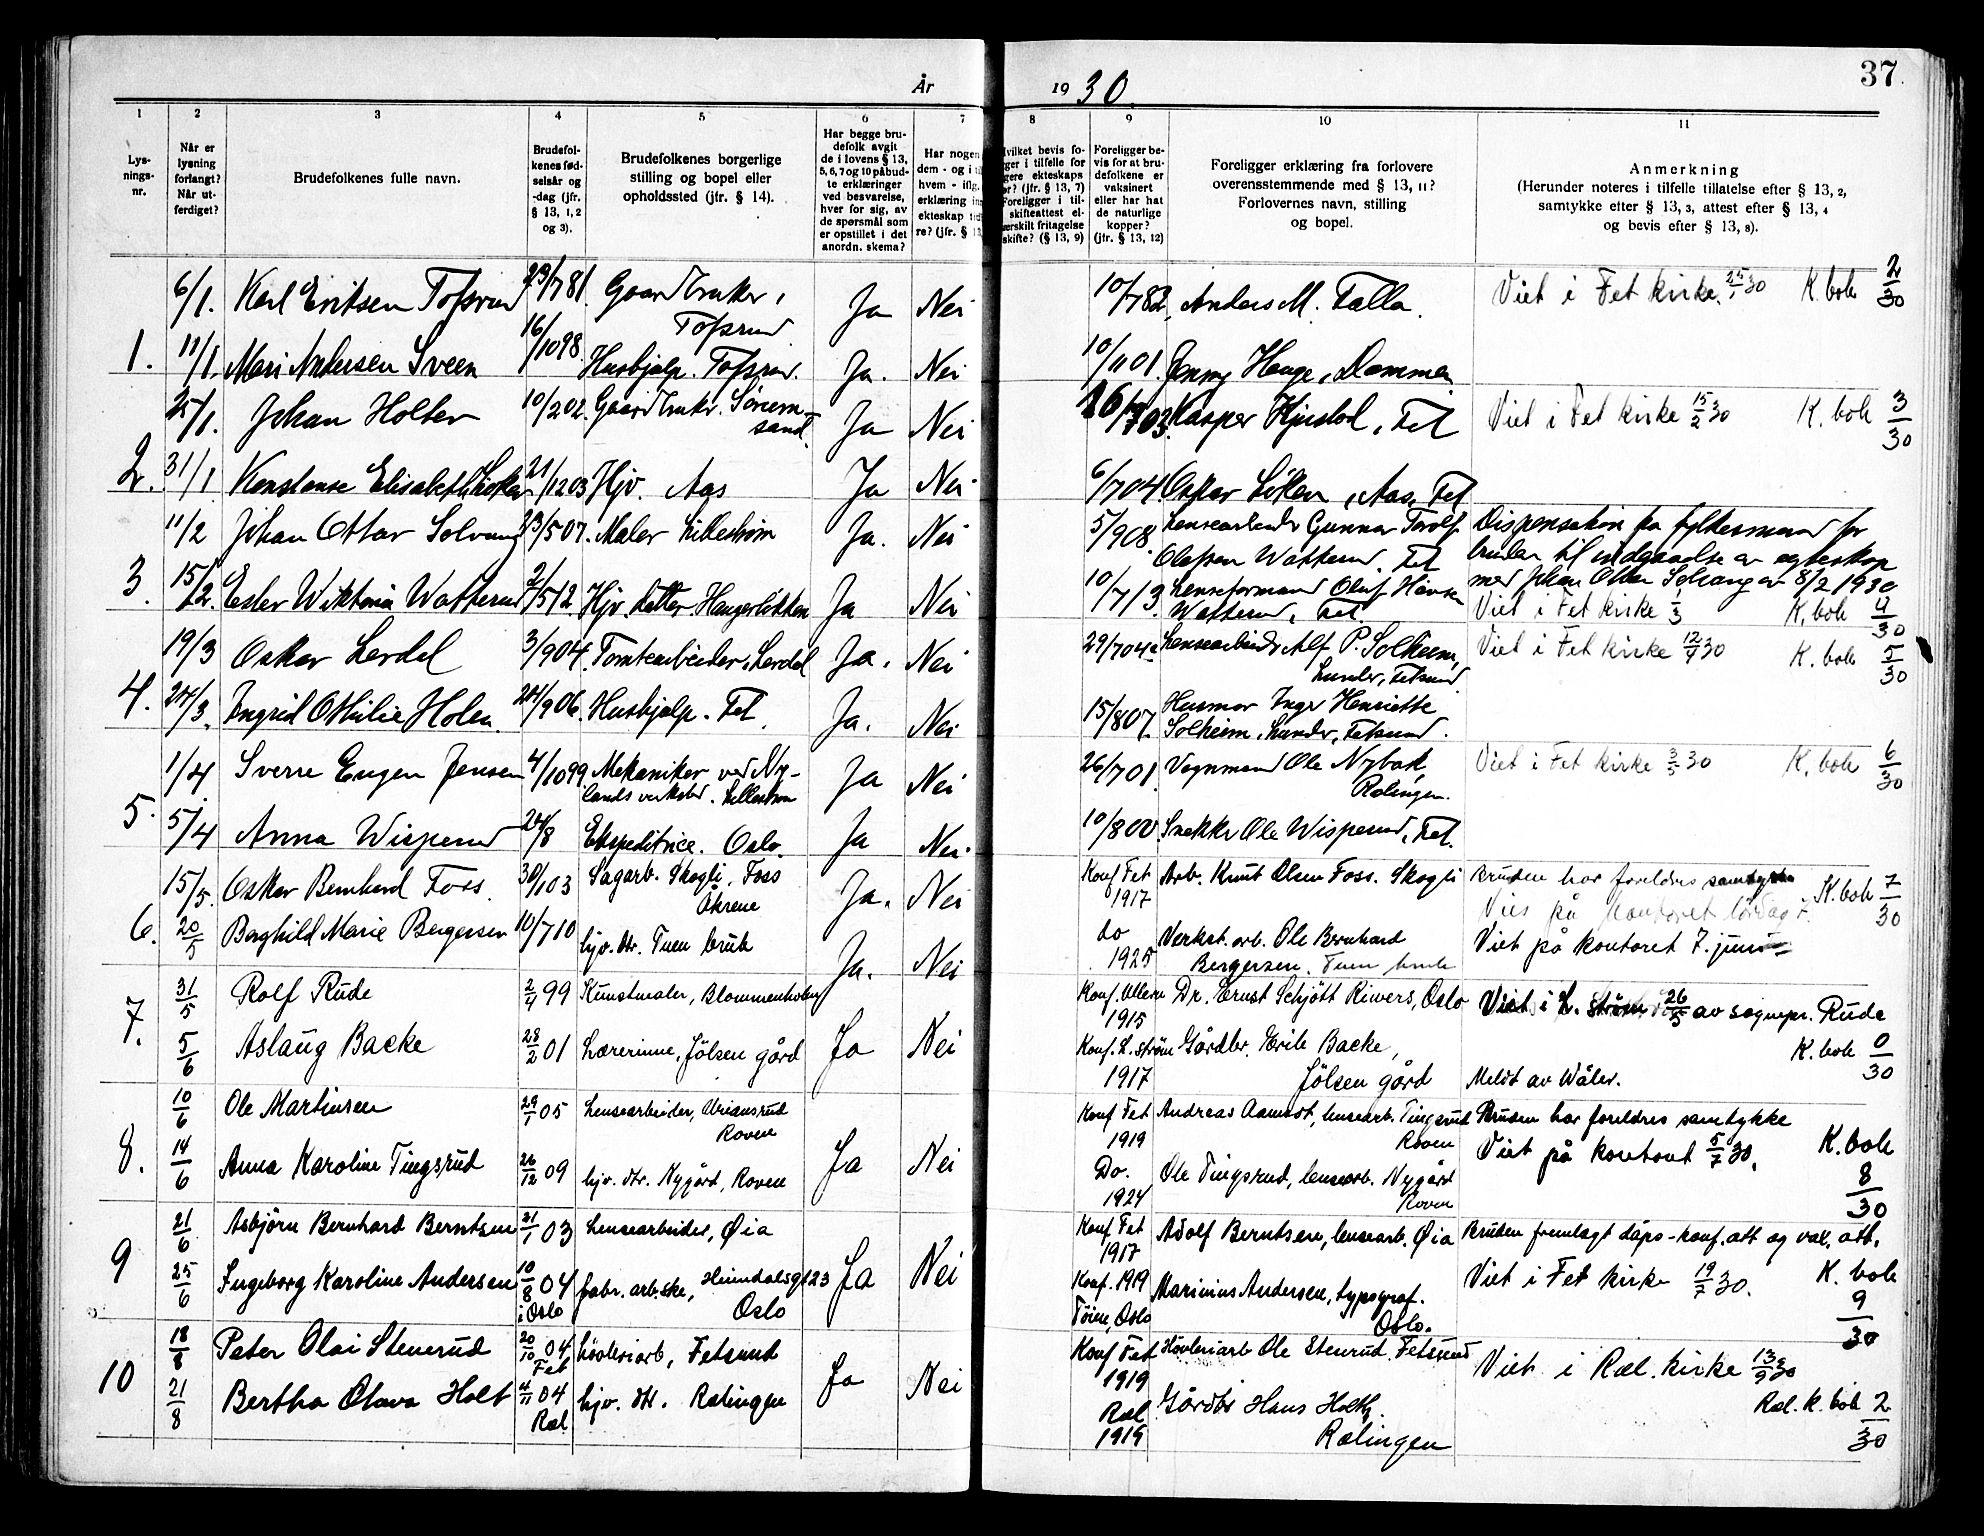 År 1930. 37
1 2 3 4 5 6 7 8 9 10 11
Lys-
nings-
nr.
Når er
lysning
forlangt?
Når ut-
ferdiget?
Brudefolkenes fulle navn.
Brudefol-
kenes fød-
selsår og
-dag (jfr.
§ 13, 1, 2
og 3).
Brudefolkenes borgerlige
stilling og bopel eller
opholdssted (jfr. § 14).
Har begge bru-
defolk avgit
de i lovens § 13,
5, 6, 7 og 10 påbud-
te erklæringer
ved besvarelse,
hver for sig, av
de spørsmål som
er opstillet i det
anordn. skema?
Har nogen
dem - og i
hvem - iflg.
erklæring in
ekteskap tid
re? (jfr. § 13
Hvilket bevis fo-
ger i tilfelle for
gere ekteskaps
r? (jfr. § 13, 7)
Foreligger i til-
skifteattest el-
ærskilt fritagelse
skifte? (§ 13, 9)
Foreligger be-
vis for at bru-
defolkene er
vaksinert
eller har hat
de naturlige
kopper?
(jfr. § 13, 12)
Foreligger erklæring fra forlovere
overensstemmende med § 13, 11?
Forlovernes navn, stilling
og bopel.
Anmerkning
(Herunder noteres i tilfelle tillatelse efter § 13, 2,
samtykke efter § 13, 3, attest efter § 13, 4
og bevis efter § 13, 8).
6/1. Karl Eriksen Tofsrud 23/7 81. Gaardbruker, Tofsrud Ja Nei 10/7 82 Anders M. Falla. Viet i Fet kirke 25/1 30 K. bok 2/30
1. 11/1. Mari Andersen Sveen 16/10 98. Hushjelp. Tofsrud. Ja. Nei 10/11 01. Jenny Hauge, Dammen
25/1. Johan Holter 10/2 02. Gaardbruker. Sørum-
sand. Ja Nei 03. Kasper Kjustad, Fet Viet i Fet kirke 15/2 30 K. bok 3/30
2. 31/1 Konstanse Elisabeth Løken 21/12 03 Hjv. Aas Ja Nei 6/7 04 Oskar Løken, Aas, Fet
11/2 Johan Ottar Solvang 23/5 07. Maler Lillestrøm Ja. Nei 5/9 08. Lensearbeider Gunnar Torolf
Olafsen Watterud, Fet Dispensation fra fylkesmand for
bruden til indgaaelse av egteskap
3. 15/2. Ester Wiktoria Watterud 2/5 12. Hjv. datter Haugerløkken Ja Nei 10/7 13 Lenseformand Oluf Hansen
Watterud, Fet. med Johan Ottar Solvang av 8/2 1930
Viet i Fet kirke 1/3 K. bok 4/30
19/3 Oskar Lerdal 3/9 04. Tomtearbeider, Lerdal Ja. Nei 29/7 04. Lensearbeider Alf P. Solheim,
Lunder, Fetsund Viet i Fet kirke 12/4 30 K. bok 5/30
4. 24/3. Ingrid Othilie Holen 24/9 06. Hushjelp. Fet. Ja. Nei 15/8 07. Husmor Inger Henriette
Solheim, Lunder, Fetsund.
1/4 Sverre Eugen Jensen 4/10 99. Mekaniker ved Ny-
lands verksted. Lillestrøm Ja Nei 26/7 01 Vognmand Ole Nybak
Rælingen. Viet i Fet kirke 3/5 30 K. bok 6/30
5. 5/4 Anna Wisperud 24/8 Ekspeditrice. Oslo. Ja Nei. 10/8 00 Snekker Ole Wisperud, Fet.
15/5. Oskar Bernhard Foss. 30/1 03 Sagarb. Skogli, Foss
Åkrene Ja. Nei Konf. Fet
1917 Arb. Knut Olsen Foss. Skogli Bruden har foreldres samtykke
Vies på kontoret lørdag 7. K. bok 7/30
6. 20/5 Borghild Marie Bergersen 10/7 10 hjv. dtr. Tuen bruk Ja. Nei do
1925 Verkst. arb. Ole Bernhard
Bergersen. Tuen bruk Viet på kontoret 7. juni
7. 31/5 Rolf Rude 2/4 99 Kunstmaler, Blommenholm Konf. Ullern
1915 Dr. Ernst Schjött Rivers, Oslo Viet i L. strøm 26/5 av sognepr. Rude
5/6 Aslaug Backe 28/2 01 Lærerinne, Jölsen gård Ja Nei Konf. L. strøm
1917 Gårdbr. Erik Backe,
Jölsen gård K. bok 0/30
Meldt av Wåler.
10/6 Ole Martinsen 29/1 05 Lensearbeider, Uriansrud
Roven Konf. Fet
1919 Andreas Aamodt, lensearb. Tingsrud
Roven Bruden har foreldres samtykke
8. 14/6 Anna Karoline Tingsrud 26/12 09 hjv. dtr. Nygård, Roven Ja Nei Do.
1924 Ole Tingsrud, lensearb. Nygård
Roven Viet på kontoret 5/7 30. K. bok 8/30
21/6 Asbjörn Bernhard Berntsen 31/1 03 Lensearbeider, Øia Konf Fet
1917 Adolf Berntsen, lensearb. Øia Bruden fremlagt dåps-konf. att og vak. att.
9 25/6 Ingeborg Karoline Andersen 10/8 04
i Oslo fabr. arb.ske, Heimdalsgt 23
Oslo Ja Nei Konf. 1919
Töien, Oslo Marinius Andersen, typograf.
Oslo. Viet i Fet kirke 19/7 30. K. bok 9/30
18/8 Peter Olai Stenerud 20/10 04
Fet Høvleriarb, Fetsund Konf Fet
1919 Høvleriarb Ole Stenrud. Fetsund Viet i Ræl. kirke 13/9 30
10 21/8 Bertha Olava Holt 4/11 04
Ræl hjv. dtr. Rælingen Ja Nei Ræl
1919 Gårdbr Hans Holt,
Rælingen Ræl. K. bok 2/30